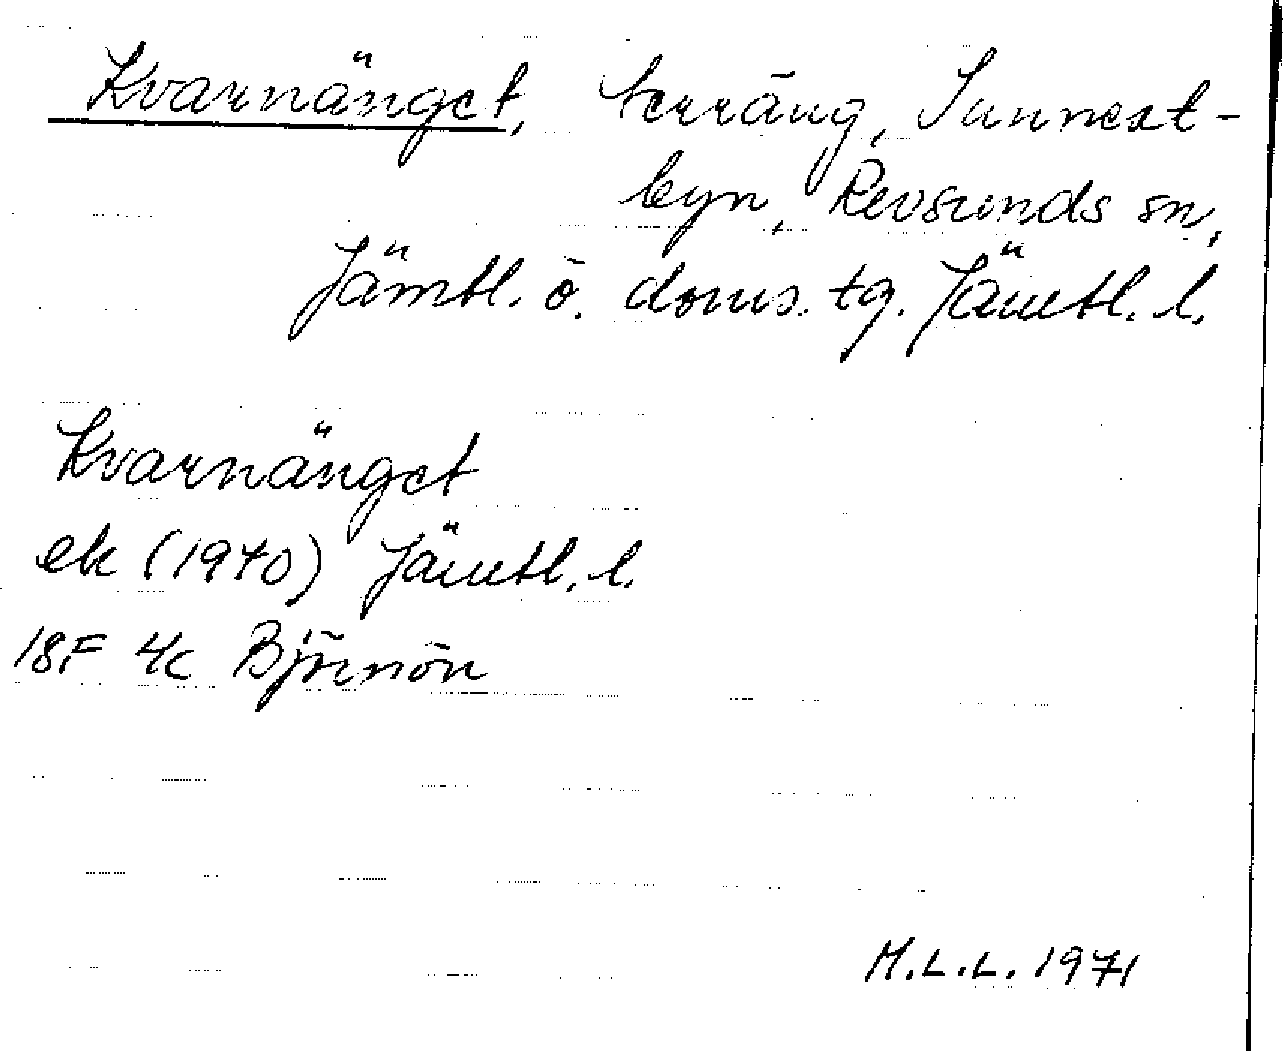 Kvarnänget, terräng, Sunnext-
byn, Revsunds sn,
Jämtl. ö. doms. tg. Jämtl. l.
Kvarnänget
ek (1970) Jämtl. l.
18F 4c Björnön
M.L.L. 1971